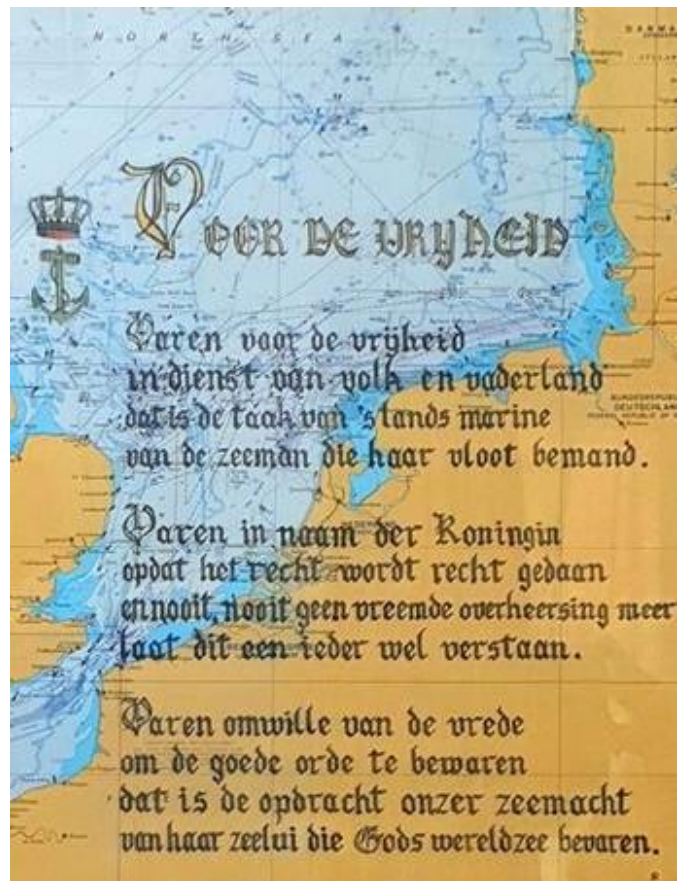 NORTH SEA
VOOR DE VRIJHEID
Varen voor de vrijheid
in dienst van volk en vaderland
dat is de taak van 's lands marine
van de zeeman die haar vloot bemand.
Varen in naam der Koningin
opdat het recht wordt recht gedaan
en nooit, nooit geen vreemde overheersing meer
laat dit een ieder wel verstaan.
Varen omwille van de vrede
om de goede orde te bewaren
dat is de opdracht onzer zeemacht
van haar zeelui die Gods wereldzee bevaren.